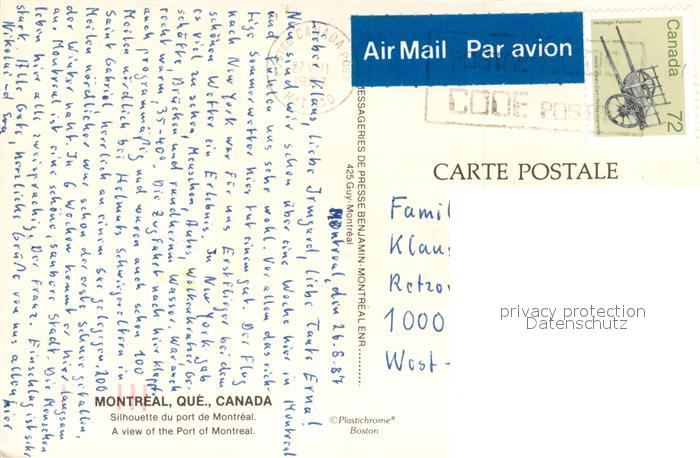 Montreal, den 26.8.87
Lieber Klaus, liebe Irmgard, liebe Tante Erna!
Nun sind wir schon über eine Woche hier in Montreal
und fühlen uns sehr wohl. Vor allem das rich-
tige Sommerwetter hier tut einem gut. Der Flug
nach New York war für uns Erstflieger bei dem
schönen Wetter ein Erlebnis. In New York gab
es viel zu sehen, Menschen, Autos, Wolkenkratzer Ge-
schäfte Brücken und rundherum Wasser. War auch
recht warm 35-40° Die Zugfahrt nach hier klappte
auch programmäßig und waren auch schon 100
Meilen nördlich bei Helmuts Schwiegereltern in
Saint Gabriel herrlich an einem See gelegen. 200
Meilen nördlicher war schon der erste Schnee gefallen,
der Winter naht. In 6 Wochen kommt er hier langsam
an. Montreal ist eine schöne, saubere Stadt. Die Menschen
leben hier alle zweisprachig. Der Franz. Einschlag ist sehr
stark. Alle Gute, herzliche Grüße von uns allen hier
Nikolai und
MONTRÉAL, QUÉ., CANADA
Silhouette du port de Montréal.
A view of the Port of Montreal.
MESSAGERIES DE PRESSE BENJAMIN-MONTRÉAL ENR.
425 Guy-Montréal
©Plastichrome®
Boston
Air Mail Par avion
CANADA
CODE POSTAL
Heritage/Patrimoine
Canada
72
CARTE POSTALE
Famil
Klaus
Retzo
1000
West-
privacy protection
Datenschutz